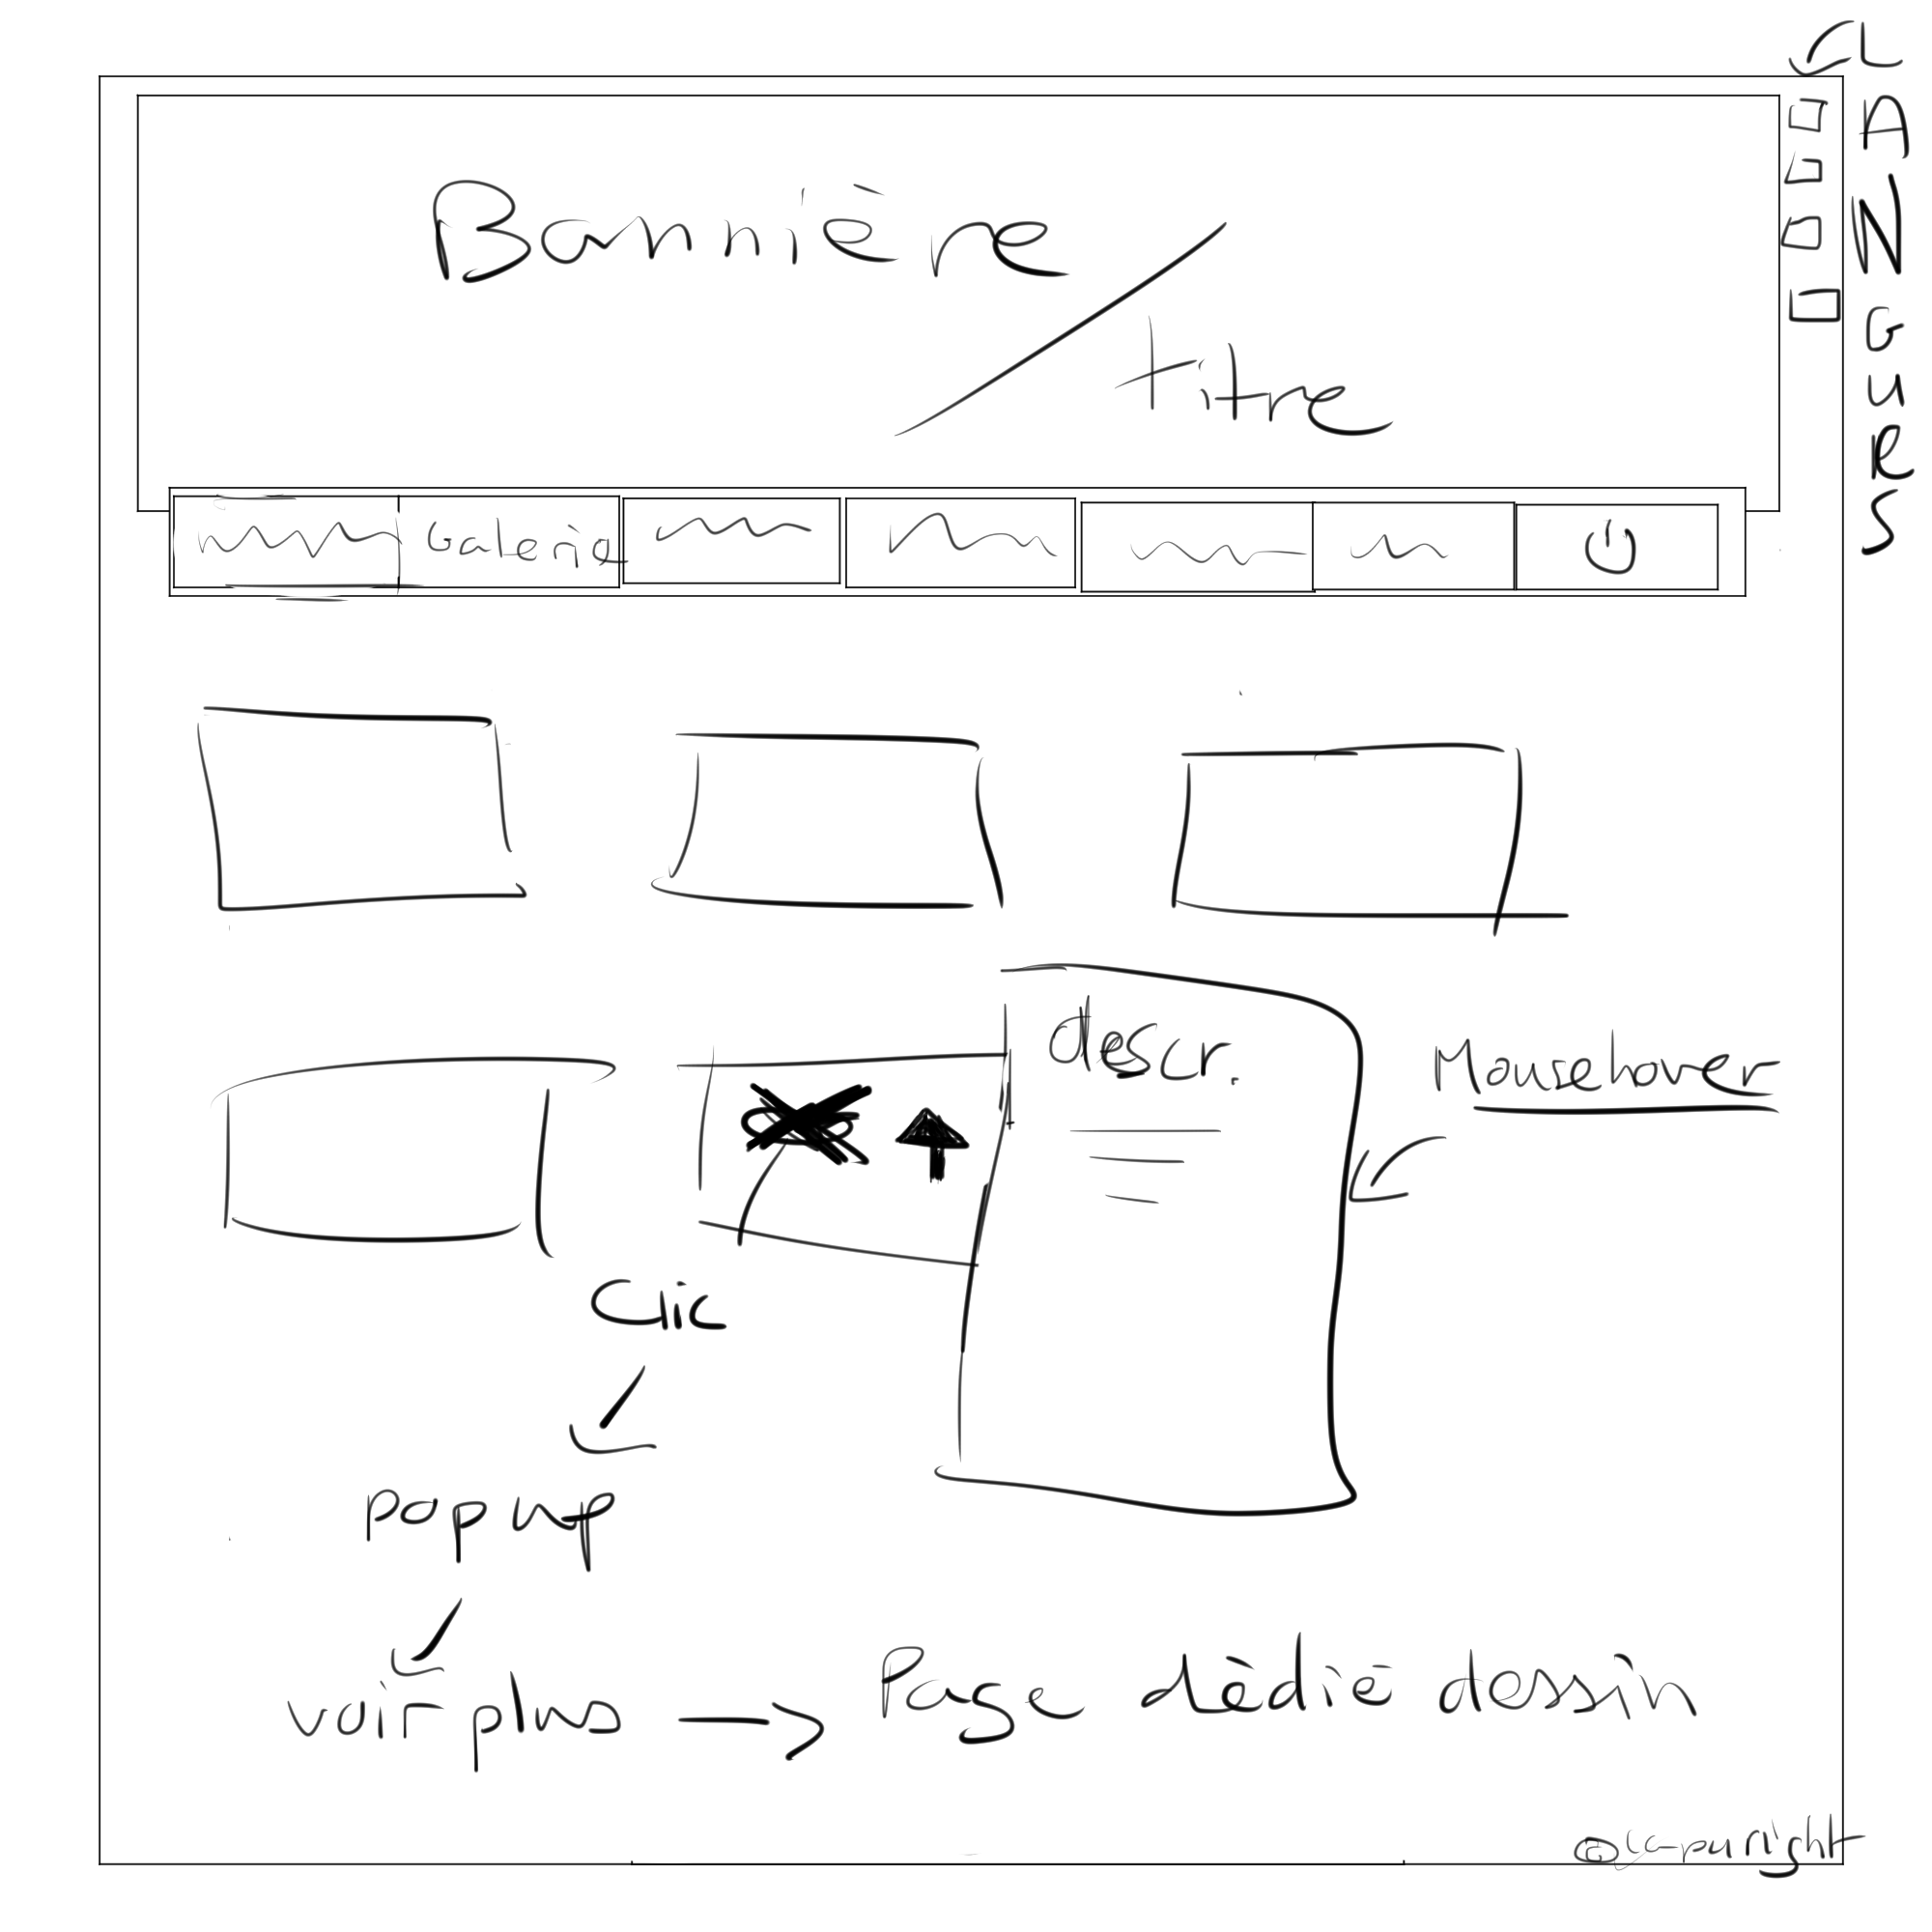 LANGUES
Bannière
/
titre
Galerie
descr.
Mousehover
Clic
pop up
voir plus → Page dédié dessin